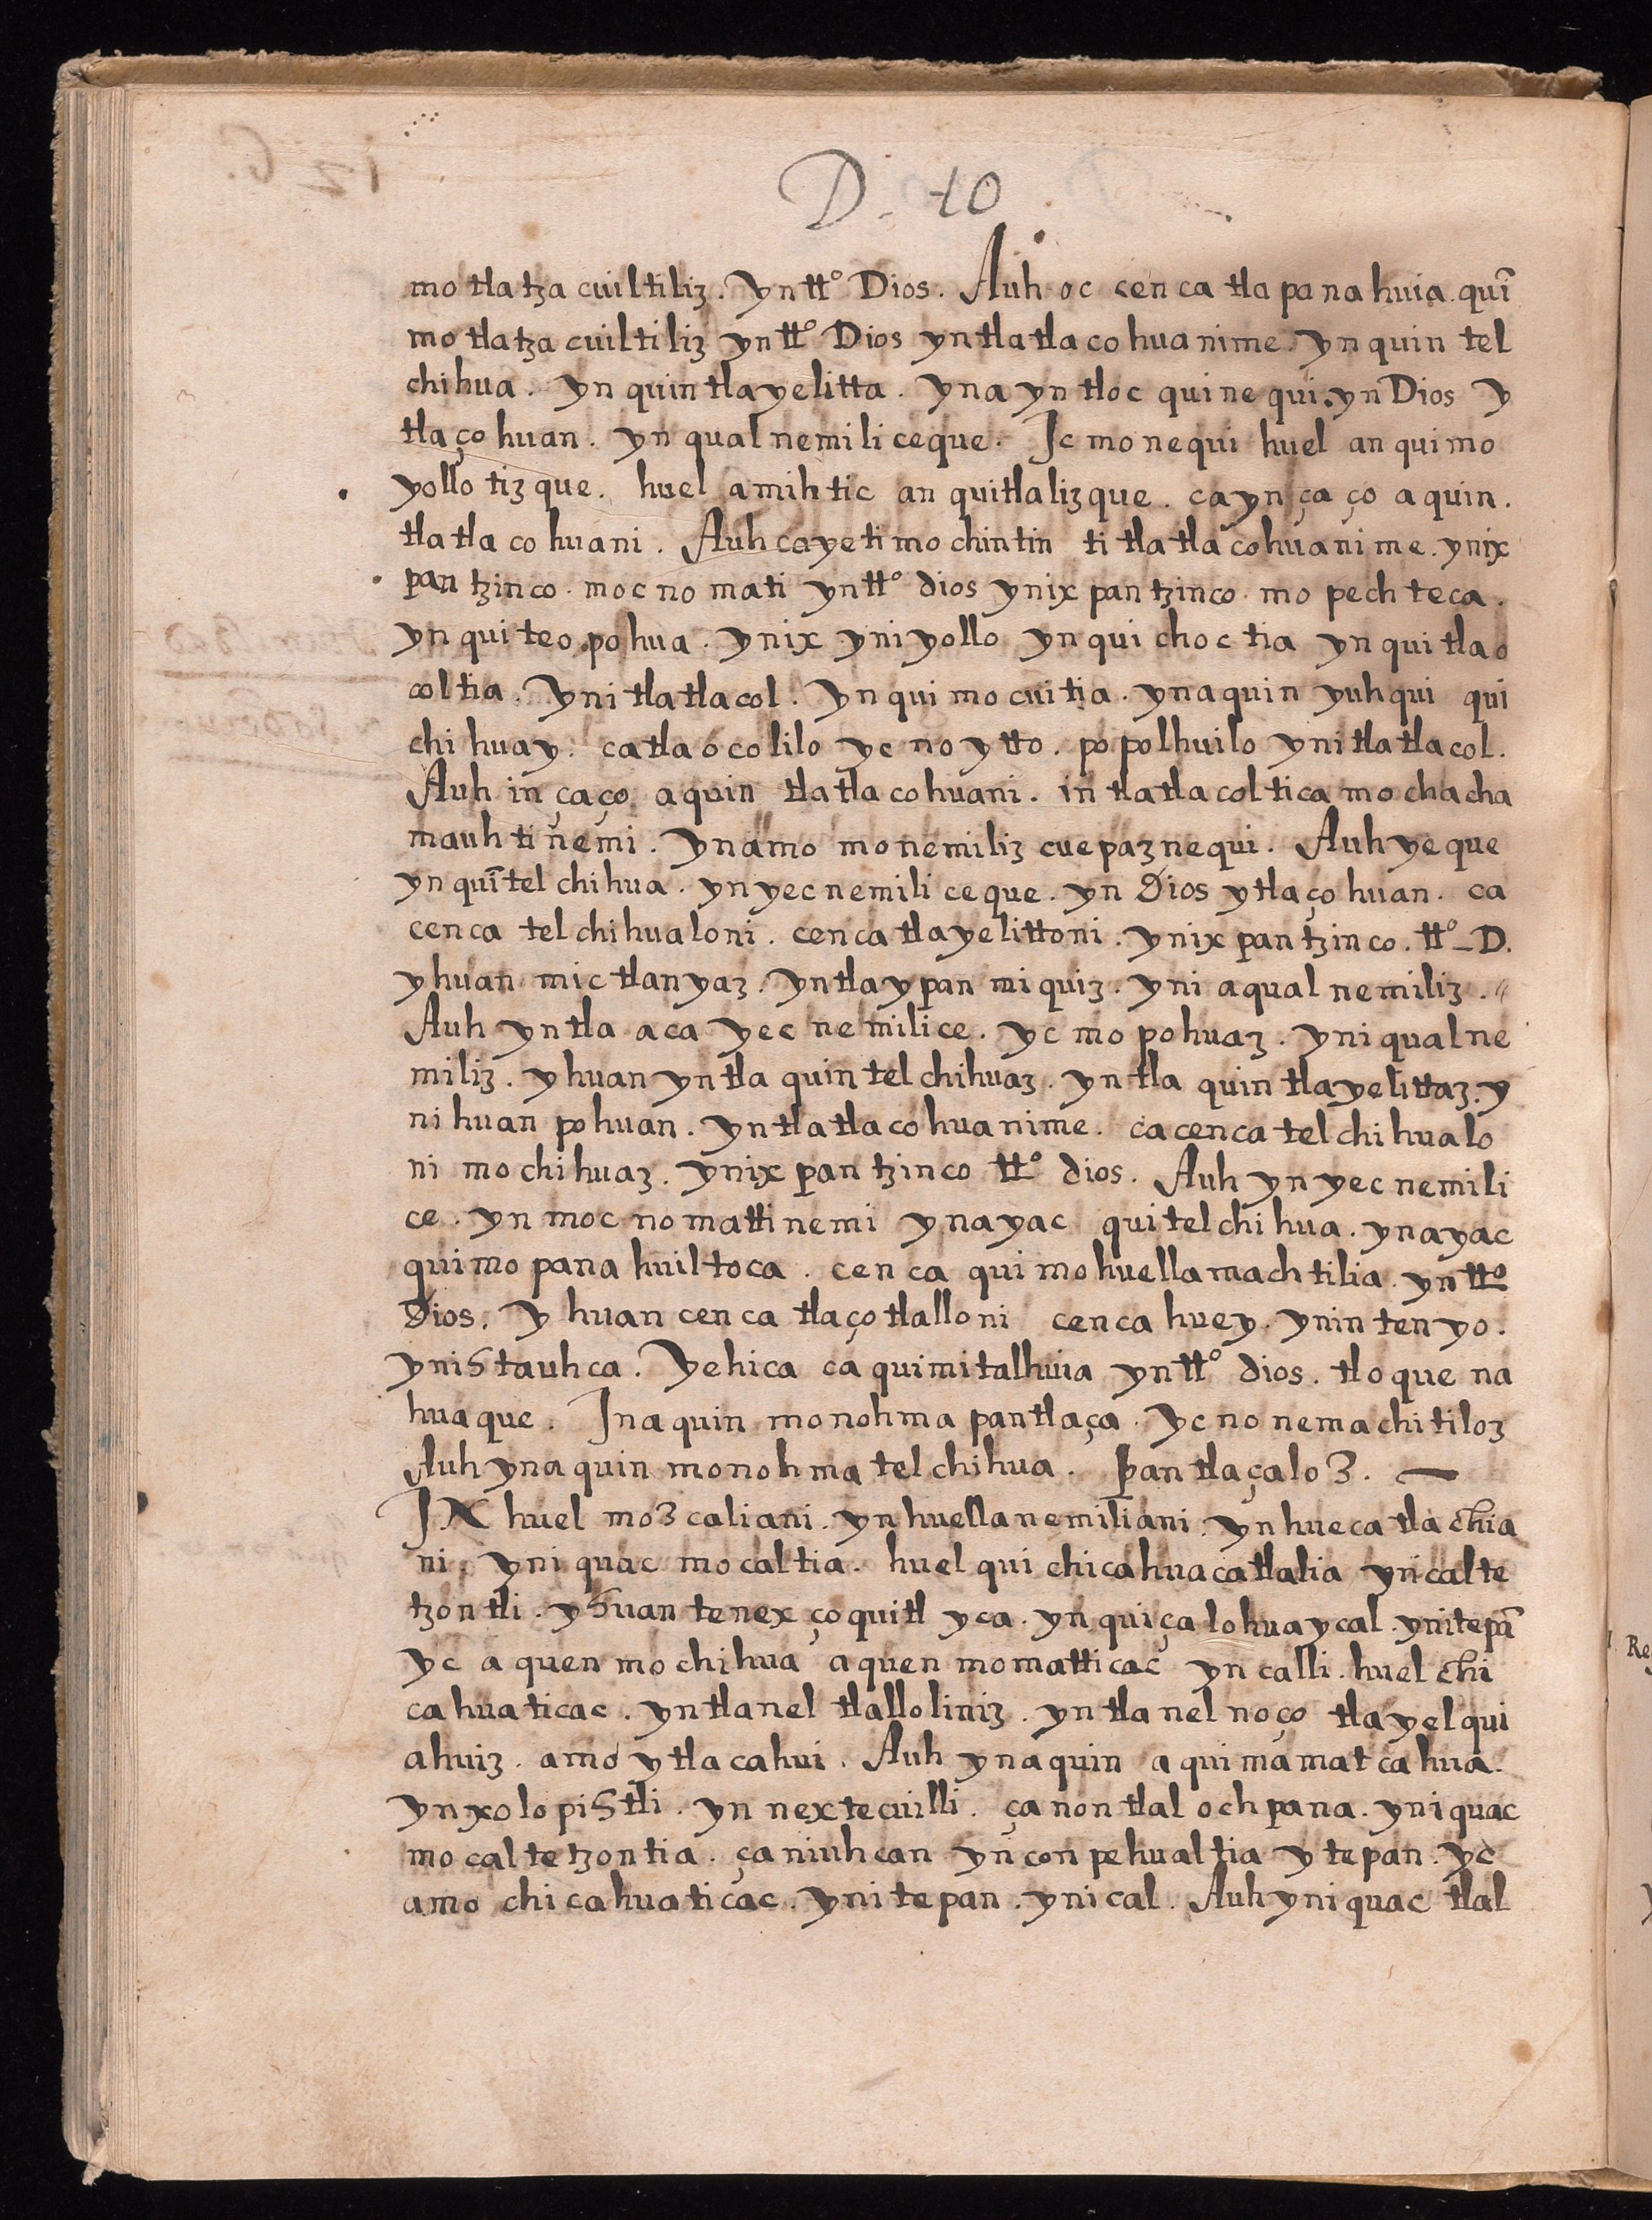 D. 10
mo tlatza cuiltiliz. Yn tt° Dios. Auh oc cenca tlapanahuia. quī
mo tlatza cuiltiliz yn tt° Dios yn tlatlacohuanime. Yn quin tel
chihua. yn quin tlayelitta. yn ayn tloc quinequi. yn Dios y
tlaçohuan. yn qualnemiliceque. Ic monequi huel an quimo
yollotizque. huel amihtic an quitlalizque. ca yn çaço aquin.
tlatlacohuani. Auh ca ye timochintin titlatlacohuanime. ynix
pantzinco. mocnomati yn tt° dios ynixpantzinco. mopechteca.
yn quiteopohua. ynix yniyollo yn quichoctia yn quitlao
coltia. Ynitlatlacol. Yn quimocuitia. yn aquin yuhqui qui
chihuay. ca tlaócolilo ycnoytto. popolhuilo ynitlatlacol.
Auh in çaço aquin tlatlacohuani. in tlatlacoltica mochacha
mauhtinemi. Yn amo monemilizcuepaznequi. Auh yeque
yn quītelchihua. yn yecnemiliceque. yn Dios ytlaçohuan. ca
cenca telchihualoni. cenca tlayelittoni. ynixpantzinco. tt°_D.
yhuan mictlan yaz. yntla ypan miquiz. yni aqualnemiliz. "
Auh yntla aca yecnemilice. yc mopohuaz. yni qualne
miliz. yhuan yntla quintelchihuaz. yntla quintlayelittaz. y
nihuanpohuan. yn tlatlacohuanime. ca cenca telchihualo
ni mochihuaz. ynixpantzinco tt° dios. Auh yn yecnemili
ce. yn mocnomattinemi yn ayac quitelchihua. yn ayac
quimopanahuiltoca. cenca quimohuellamachtilia. yn tt°
Dios. Yhuan cenca tlaçotlalloni cenca huey. ynin tenyo.
yniStauhca. Yehica ca quimitalhuia yn tt° dios. tloque na
huaque. In aquin monohma pantlaça. ycnonemachitiloz
Auh yn aquin monohma telchihua. pantlaçaloz. —
IN huel mozcaliani. yn huellanemiliani. yn hueca tlachia
ni. yniquac mocaltia. huel quichicahuacatlalia yn calte
tzontli. yhuan tenexçoquitl yca. yn quiçalohua ycal. ynitepā
yc aquen mochihua aquen momatticac yn calli. huel chi
cahuaticac. yntlanel tlalloliniz. yntlanel noço tlayelqui
ahuiz. amo ytlacahui. Auh yn aquin aquimamatcahua.
yn xolopiStli. yn nextecuilli. ça non tlalochpana. yniquac
mocaltetzontia. ça niuhcan yn conpehualtia ytepan. yc
amo chicahuaticac. ynitepan. ynical. Auh yniquac tlal